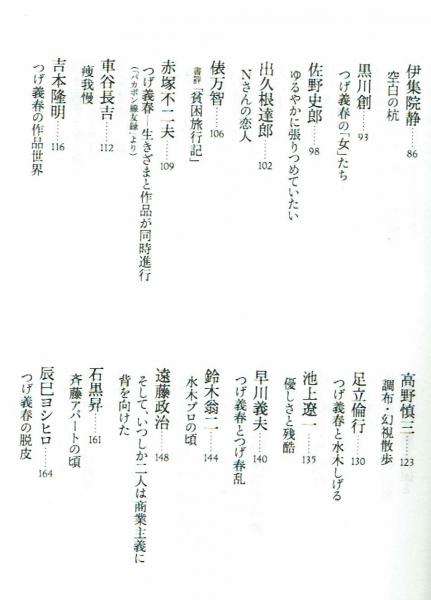 伊集院静……86
空白の杭
黒川創……93
つげ義春の「女」たち
佐野史郎……98
ゆるやかに張りつめていたい
出久根達郎……102
Nさんの恋人
俵万智……106
書評『貧困旅行記』
赤塚不二夫……109
つげ義春―生きざまと作品が同時進行
(『バカボン線友録』より)
車谷長吉……112
痩我慢
吉本隆明……116
つげ義春の作品世界
高野慎三……123
調布・幻視散歩
足立倫行……130
つげ義春と水木しげる
池上遼一……135
優しさと残酷
早川義夫……140
つげ義春とつげ春乱
鈴木翁二……144
水木プロの頃
遠藤政治……148
そして、いつしか二人は商業主義に
背を向けた
石黒昇……161
斉藤アパートの頃
辰巳ヨシヒロ……164
つげ義春の脱皮